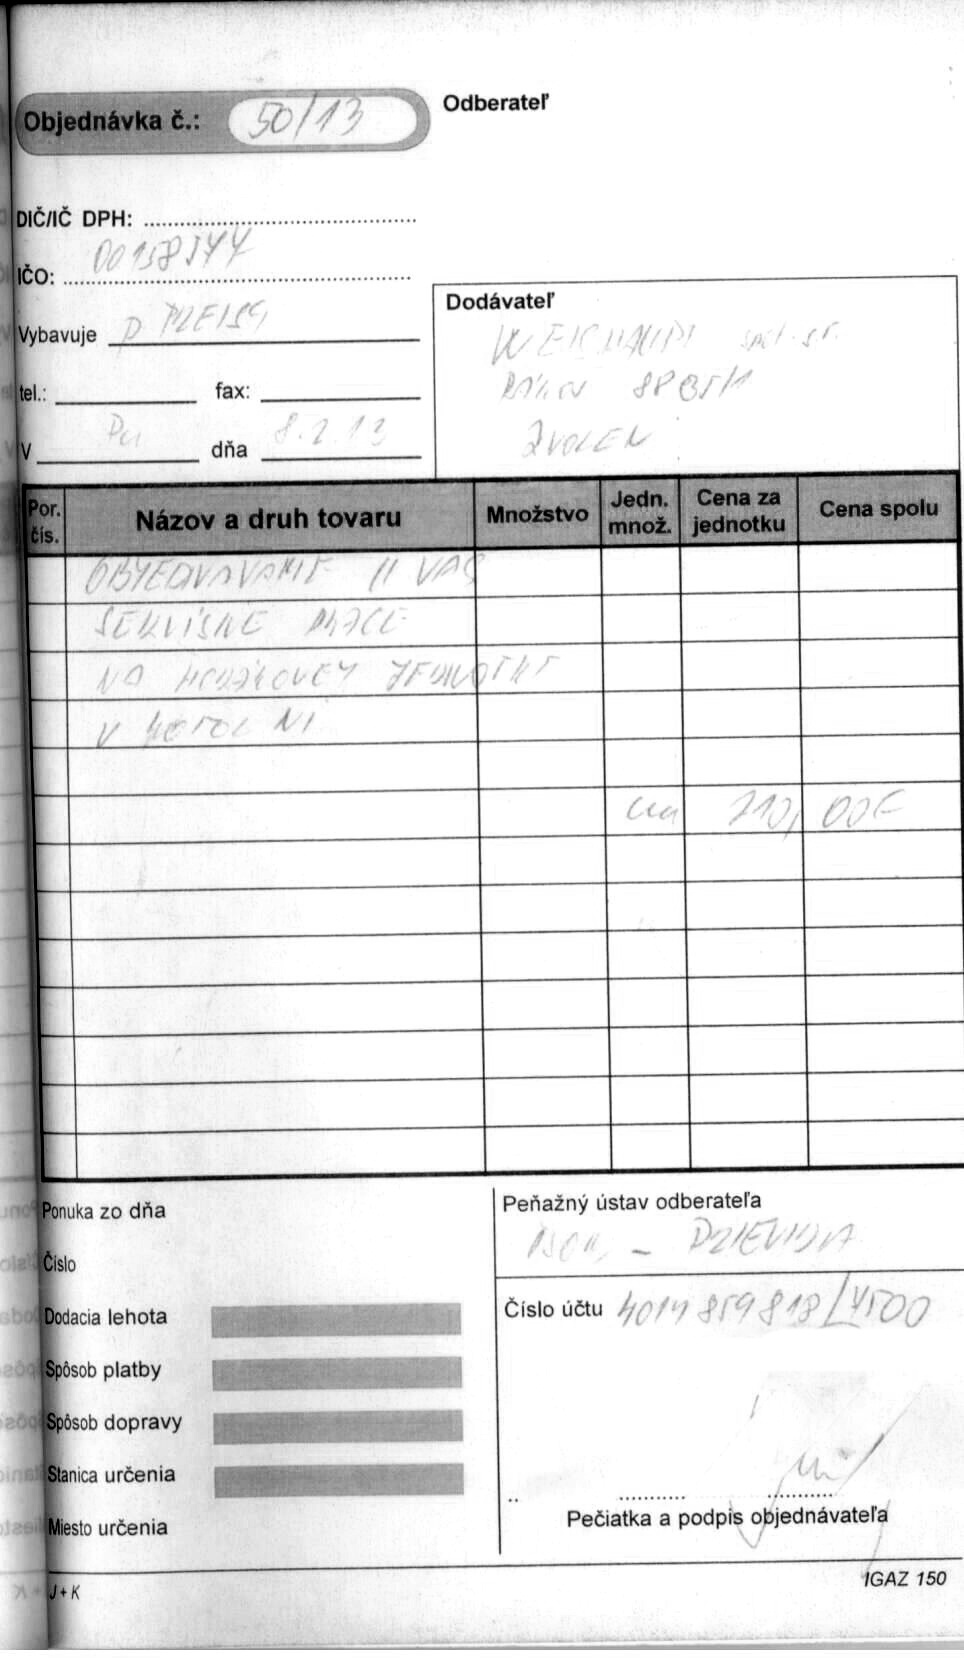 Objednávka č.: 50/13
Odberateľ
DIČ/IČ DPH:
IČO:
Vybavuje
tel.: fax:
V dňa 8.2.13
Dodávateľ
ZVOLEN
Por. čís. Názov a druh tovaru Množstvo Jedn. množ. Cena za jednotku Cena spolu
OBJEDNÁVAME U VÁS
SERVISNÉ PRÁCE
NA HORÁKOVEJ JEDNOTKE
V KOTOLNI
210,00€
Ponuka zo dňa
Číslo
Dodacia lehota
Spôsob platby
Spôsob dopravy
Stanica určenia
Miesto určenia
Peňažný ústav odberateľa
PRIEVIDZA
Číslo účtu 4014859818/7500
Pečiatka a podpis objednávateľa
J + K
IGAZ 150